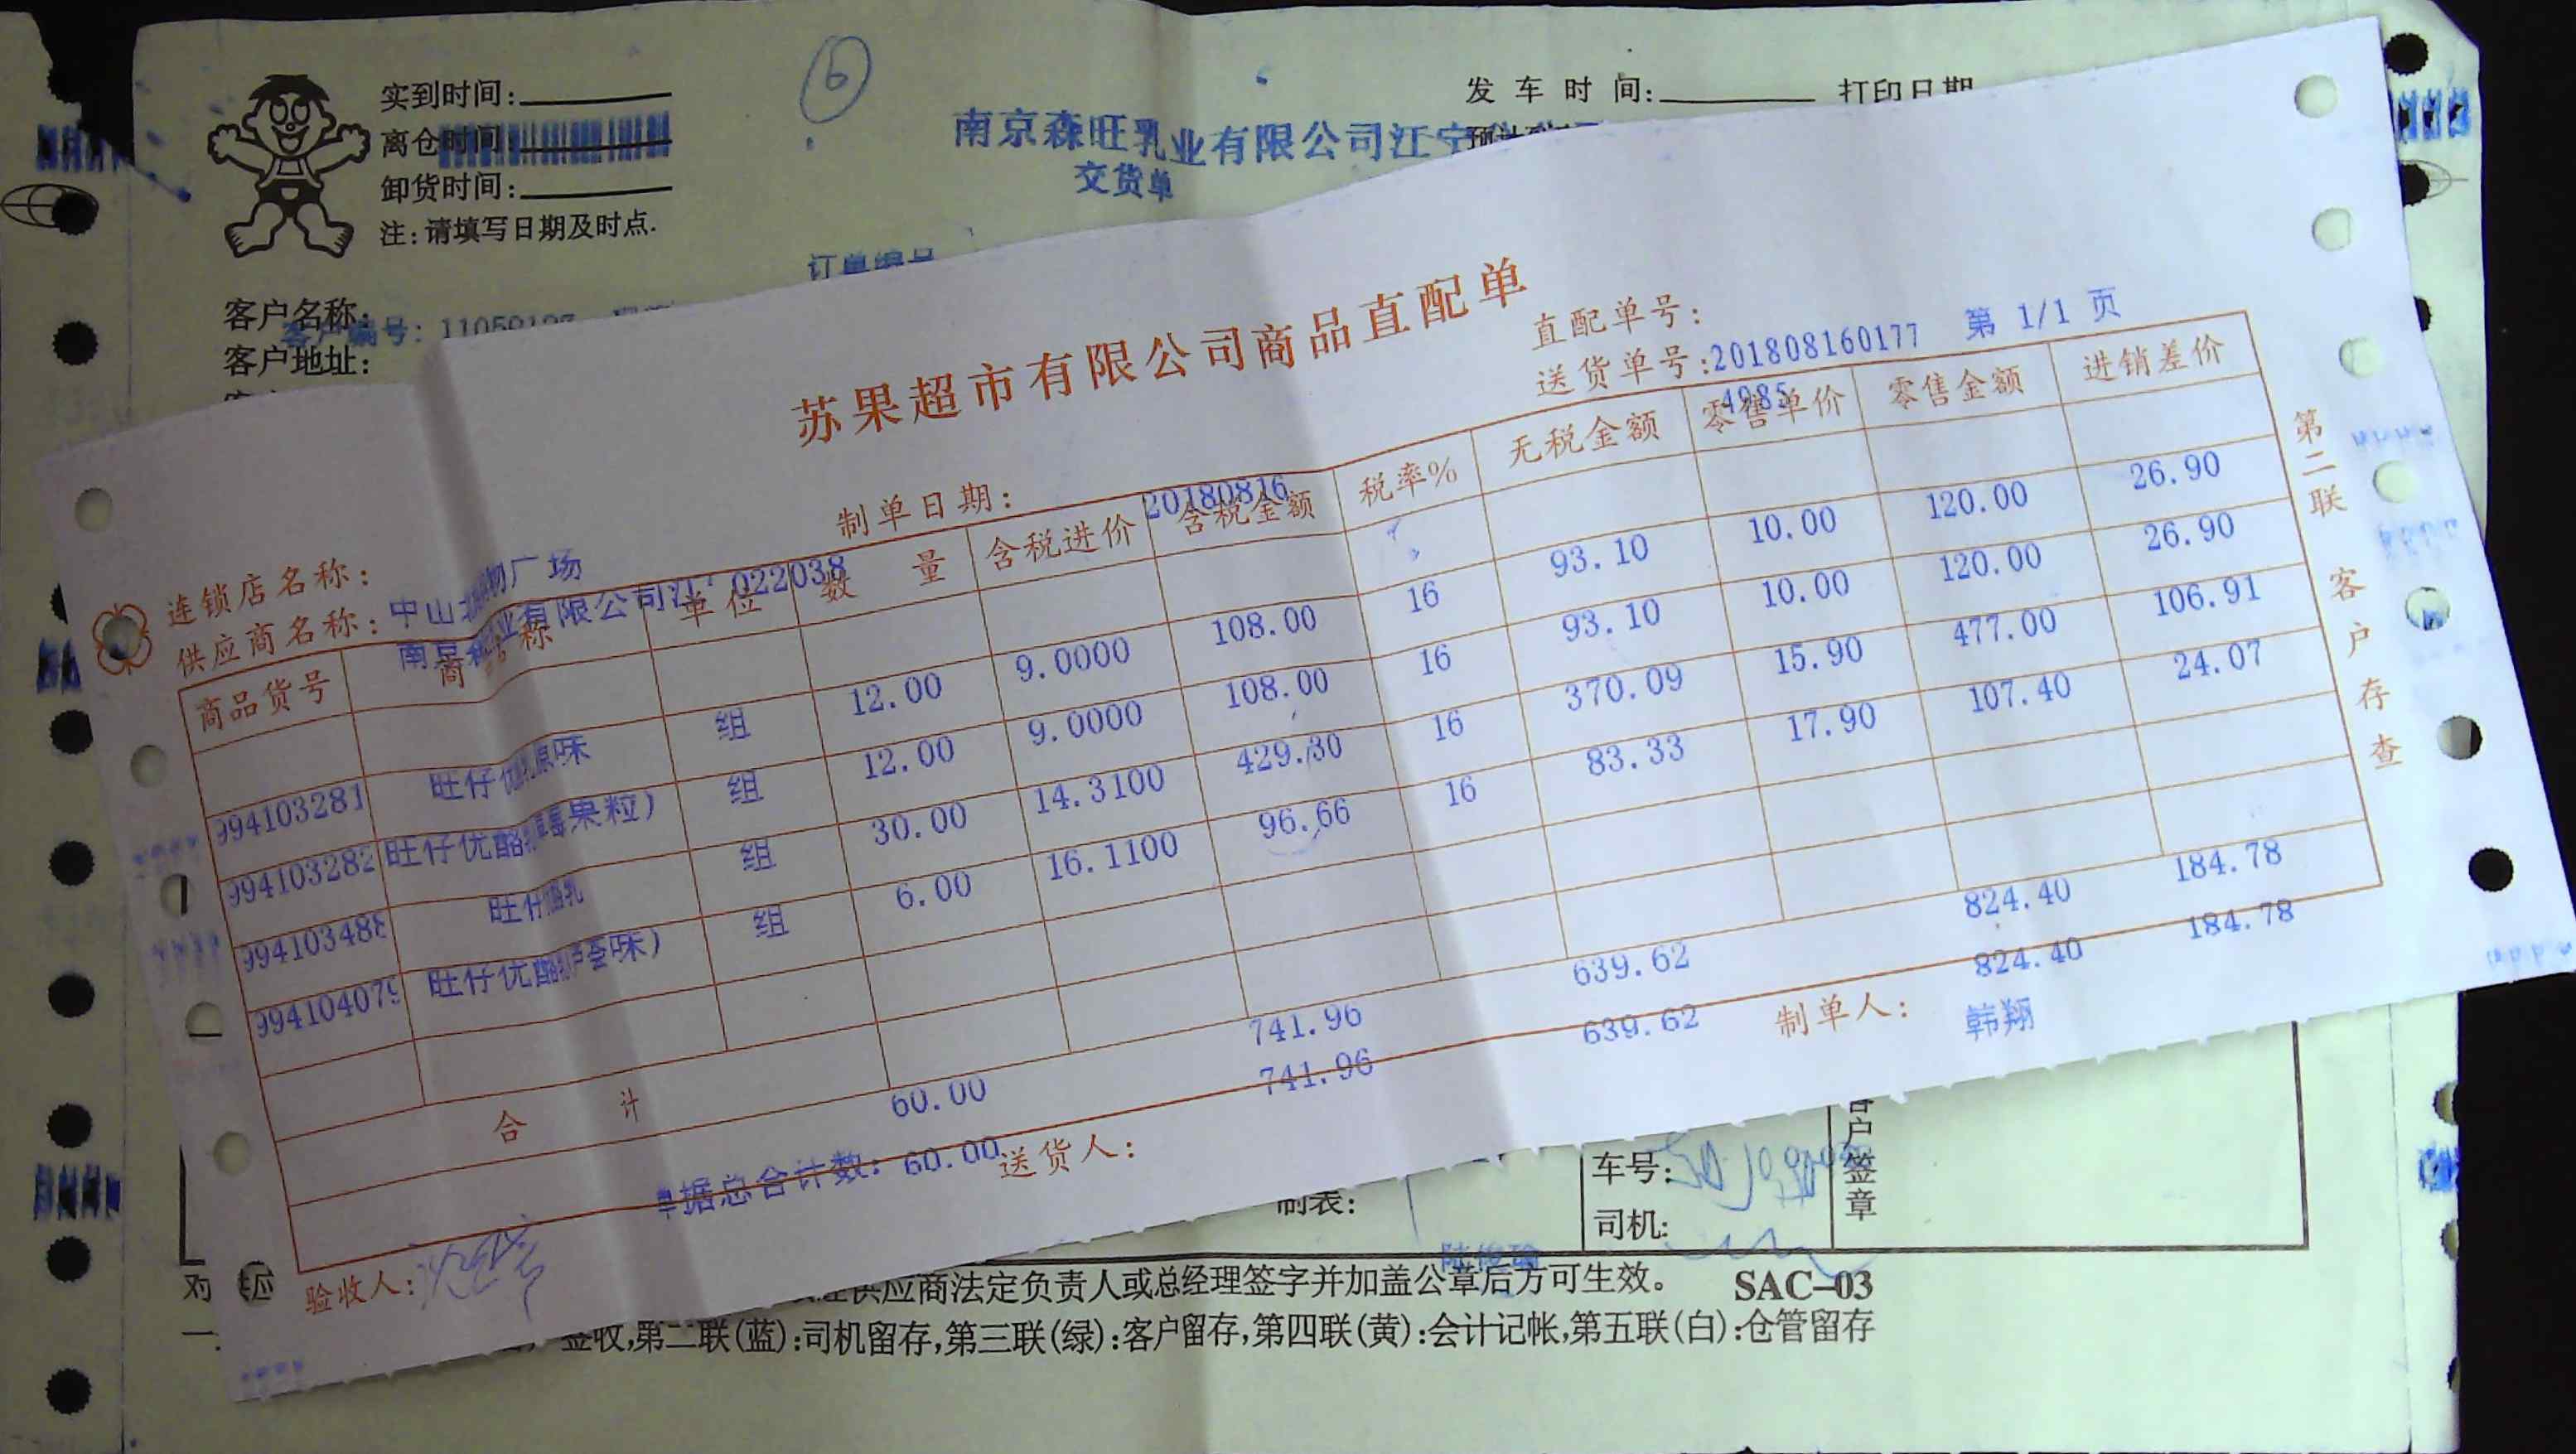 实到时间:
离仓时间
卸货时间:
注:请填写日期及时点.
6
南京森旺乳业有限公司江宁
交货单
发车时间:
打印日期
订单编号
客户名称:
客户编号: 11059197
客户地址:
苏果超市有限公司商品直配单
直配单号:
送货单号:201808160177 第 1/1 页
4985
制单日期: 20180816
连锁店名称: 中山 购物广场
供应商名称: 南京 业有限公司 022038
商品货号 商 称 单位 数量 含税进价 含税金额 税率% 无税金额 零售单价 零售金额 进销差价
994103281 旺仔 原味 组 12.00 9.0000 108.00 16 93.10 10.00 120.00 26.90
994103282 旺仔优酪 莓果粒) 组 12.00 9.0000 108.00 16 93.10 10.00 120.00 26.90
99410348 旺仔 乳 组 30.00 14.3100 429.30 16 370.09 15.90 477.00 106.91
99410407 旺仔优酪 味) 组 6.00 16.1100 96.66 16 83.33 17.90 107.40 24.07
合计 60.00 741.96 639.62 824.40 184.78
单据总合计数: 60.00 741.96 639.62 824.40 184.78
验收人: 送货人: 制单人: 韩翔
第二联 客户存查
制表:
车号:
司机:
客户签章
供应商法定负责人或总经理签字并加盖公章后方可生效。 SAC-03
签收,第二联(蓝):司机留存,第三联(绿):客户留存,第四联(黄):会计记帐,第五联(白):仓管留存